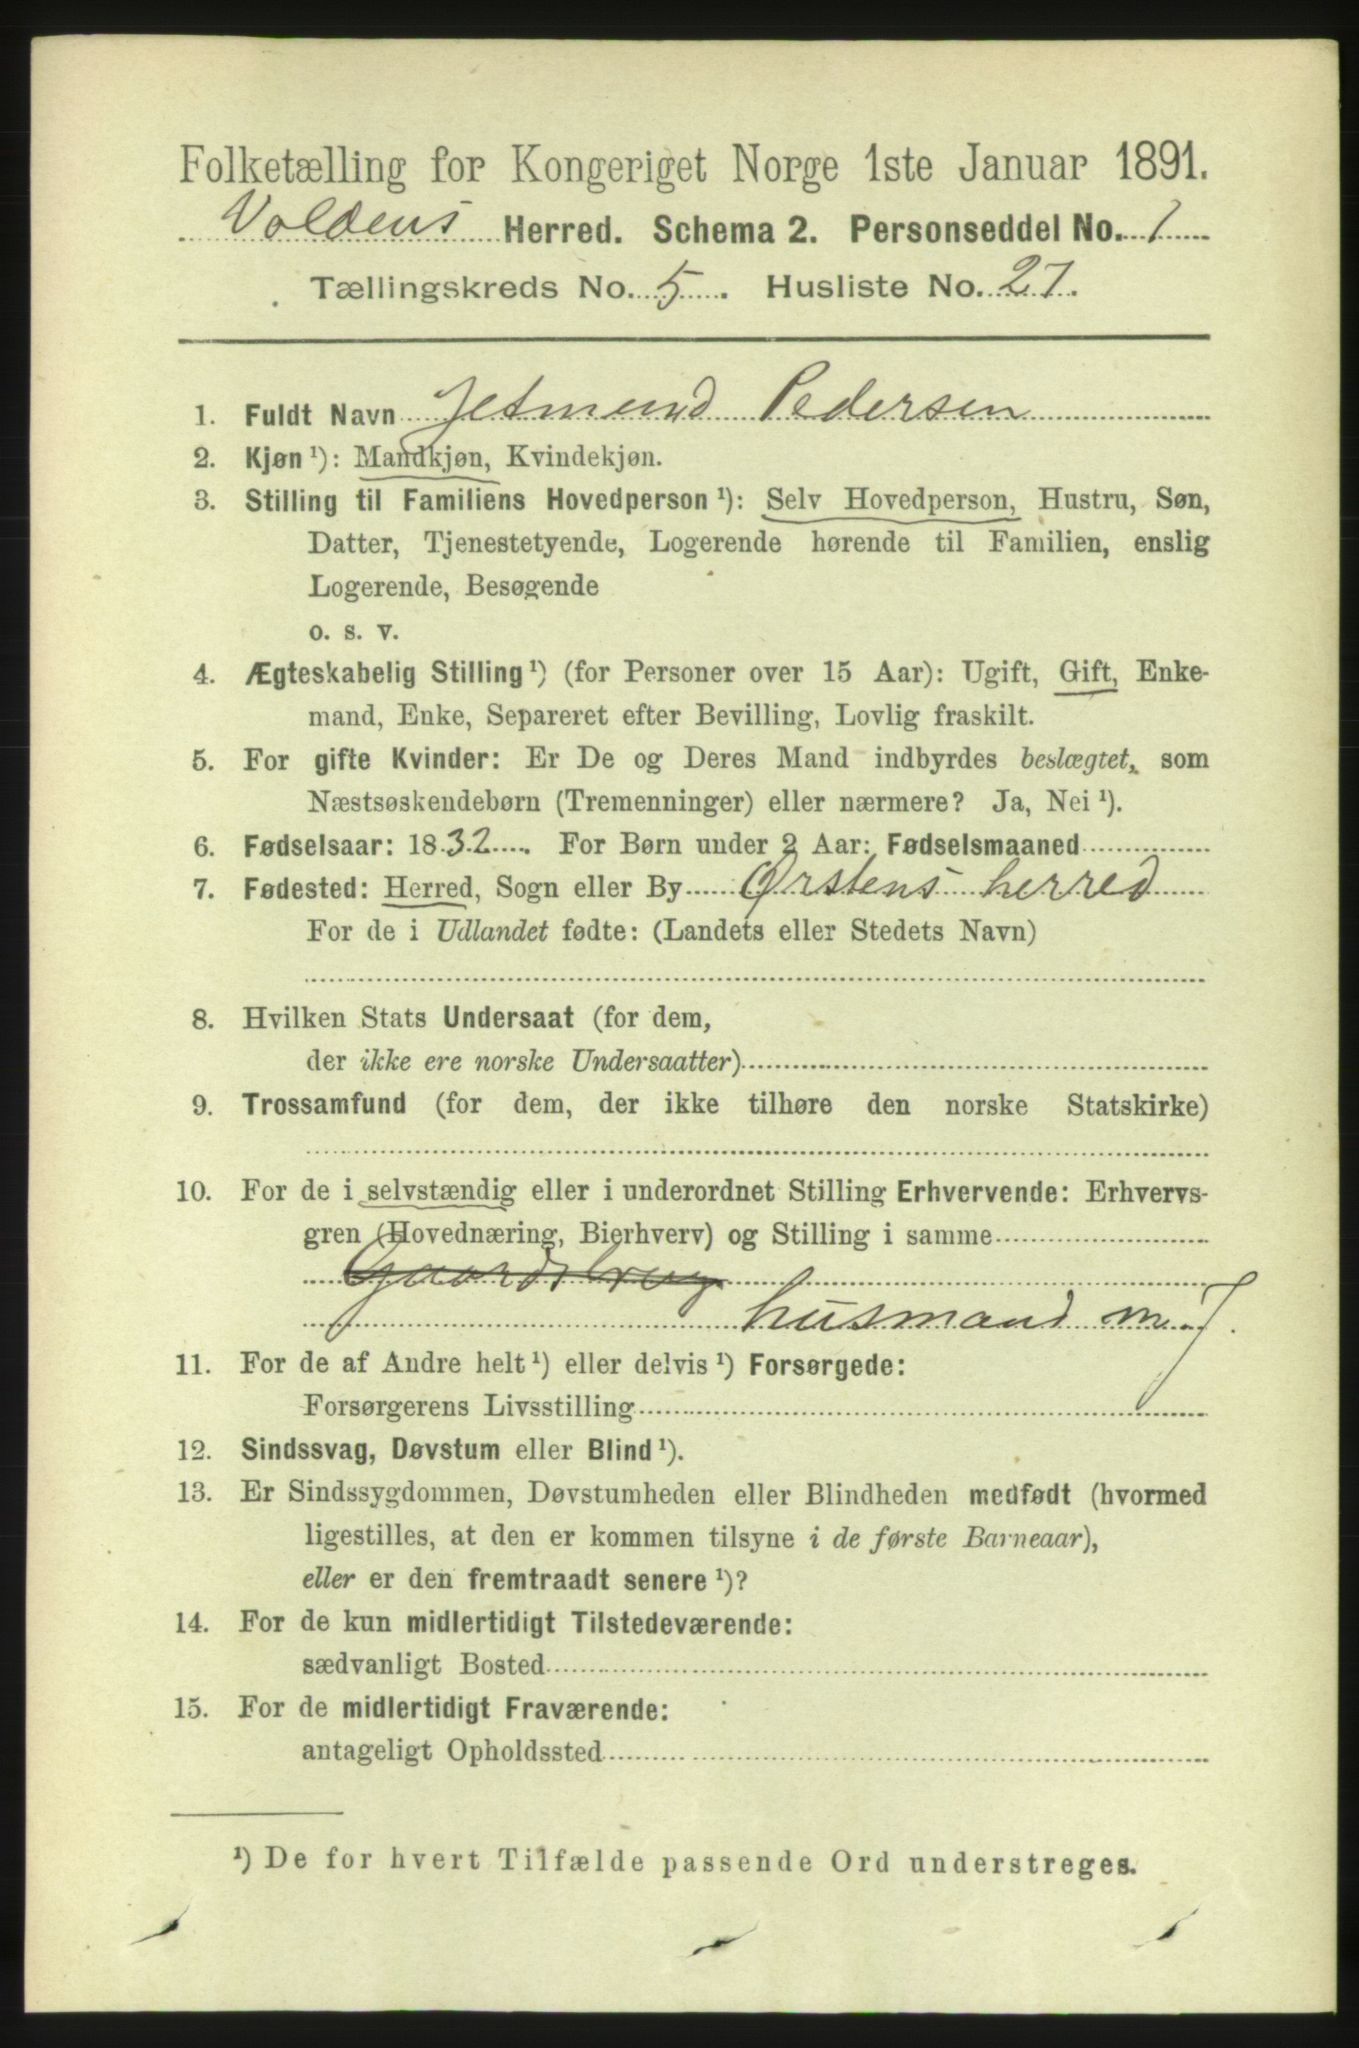 Folketælling for Kongeriget Norge 1ste Januar 1891.
Voldens Herred. Schema 2. Personseddel No. 1
Tællingskreds No. 5. Husliste No. 27.
1. Fuldt Navn Jetmund Pedersen
2. Kjøn ¹): Mandkjøn, Kvindekjøn.
3. Stilling til Familiens Hovedperson ¹): Selv Hovedperson, Hustru, Søn,
Datter, Tjenestetyende, Logerende hørende til Familien, enslig
Logerende, Besøgende
o. s. v.
4. Ægteskabelig Stilling ¹) (for Personer over 15 Aar): Ugift, Gift, Enke-
mand, Enke, Separeret efter Bevilling, Lovlig fraskilt.
5. For gifte Kvinder: Er De og Deres Mand indbyrdes beslægtet, som
Næstsøskendebørn (Tremenninger) eller nærmere? Ja, Nei ¹).
6. Fødselsaar: 1832. For Børn under 2 Aar: Fødselsmaaned
7. Fødested: Herred, Sogn eller By Ørstens herred
For de i Udlandet fødte: (Landets eller Stedets Navn)
8. Hvilken Stats Undersaat (for dem,
der ikke ere norske Undersaatter)
9. Trossamfund (for dem, der ikke tilhøre den norske Statskirke)
10. For de i selvstændig eller i underordnet Stilling Erhvervende: Erhvervs-
gren (Hovednæring, Bierhverv) og Stilling i samme
Gaardsbrug
husmand m. J.
11. For de af Andre helt ¹) eller delvis ¹) Forsørgede:
Forsørgerens Livsstilling
12. Sindssvag, Døvstum eller Blind ¹).
13. Er Sindssygdommen, Døvstumheden eller Blindheden medfødt (hvormed
ligestilles, at den er kommen tilsyne i de første Barneaar),
eller er den fremtraadt senere ¹)?
14. For de kun midlertidigt Tilstedeværende:
sædvanligt Bosted
15. For de midlertidigt Fraværende:
antageligt Opholdssted
¹) De for hvert Tilfælde passende Ord understreges.